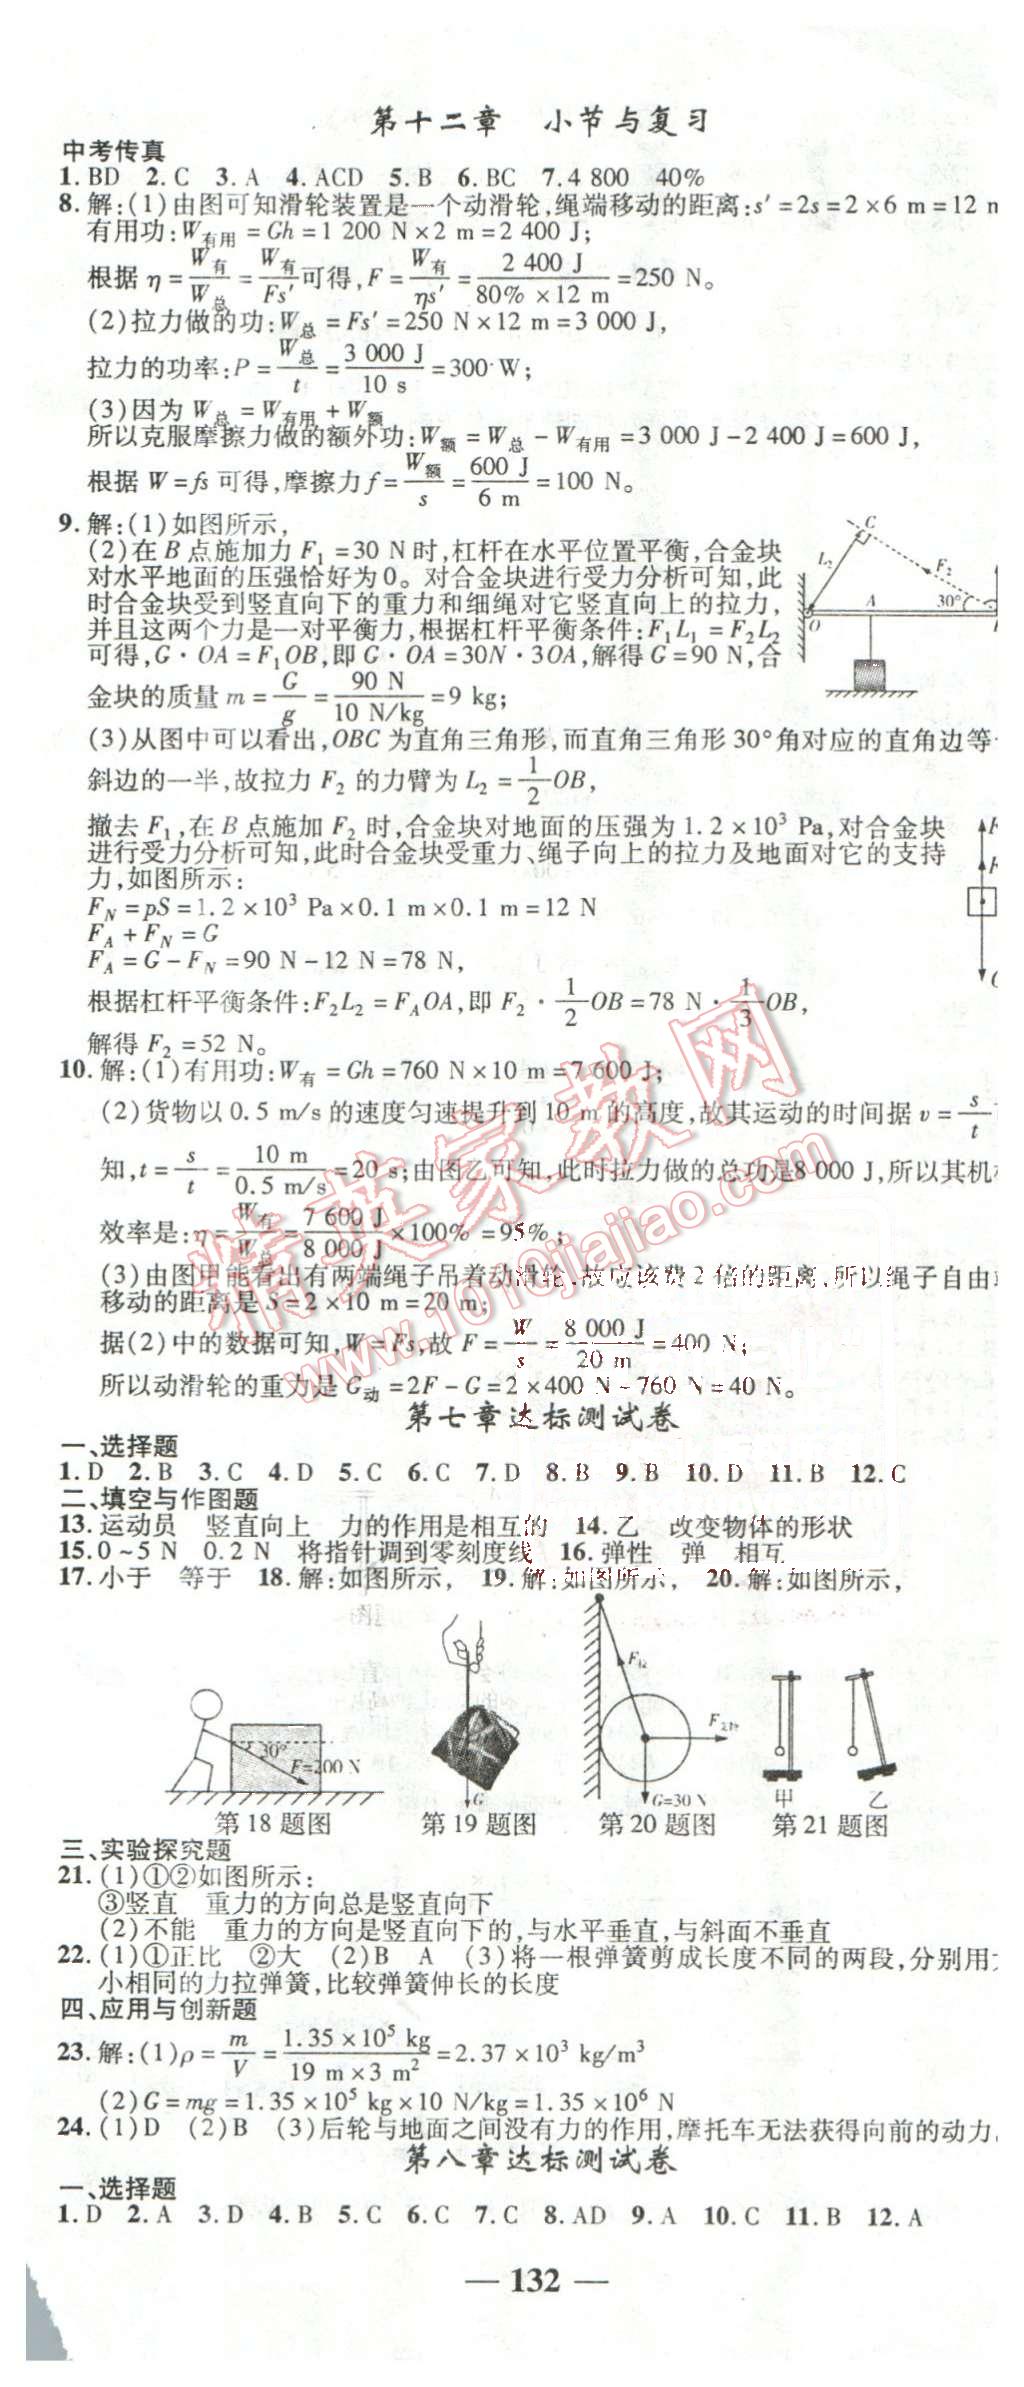 第十二章 小节与复习
中考传真
1. BD 2. C 3. A 4. ACD 5. B 6. BC 7. 4 800 40%
8. 解:(1)由图可知滑轮装置是一个动滑轮,绳端移动的距离:s′=2s=2×6 m=12 m
有用功:W有用=Gh=1 200 N×2 m=2 400 J;
根据 η=W有/W总=W有/Fs′可得,F=W有/ηs′=2 400 J/(80%×12 m)=250 N。
(2)拉力做的功:W总=Fs′=250 N×12 m=3 000 J,
拉力的功率:P=W总/t=3 000 J/10 s=300 W;
(3)因为 W总=W有用+W额
所以克服摩擦力做的额外功:W额=W总-W有用=3 000 J-2 400 J=600 J,
根据 W=fs 可得,摩擦力 f=W额/s=600 J/6 m=100 N。
9. 解:(1)如图所示,
(2)在 B 点施加力 F₁=30 N 时,杠杆在水平位置平衡,合金块
对水平地面的压强恰好为0。对合金块进行受力分析可知,此
时合金块受到竖直向下的重力和细绳对它竖直向上的拉力,
并且这两个力是一对平衡力,根据杠杆平衡条件:F₁L₁=F₂L₂
可得,G·OA=F₁OB,即 G·OA=30N·3OA,解得 G=90 N,合
金块的质量 m=G/g=90 N/(10 N/kg)=9 kg;
C
L₂
F₂
A
30°
O
(3)从图中可以看出,OBC 为直角三角形,而直角三角形30°角对应的直角边等
斜边的一半,故拉力 F₂ 的力臂为 L₂=1/2 OB,
撤去 F₁,在 B 点施加 F₂ 时,合金块对地面的压强为1.2×10³ Pa,对合金块
进行受力分析可知,此时合金块受重力、绳子向上的拉力及地面对它的支持
力,如图所示:
F_N=pS=1.2×10³ Pa×0.1 m×0.1 m=12 N
F_A+F_N=G
F_A=G-F_N=90 N-12 N=78 N,
根据杠杆平衡条件:F₂L₂=F_A OA,即 F₂·1/2 OB=78 N·1/3 OB,
解得 F₂=52 N。
10. 解:(1)有用功:W有=Gh=760 N×10 m=7 600 J;
(2)货物以0.5 m/s 的速度匀速提升到10 m的高度,故其运动的时间据 v=s/t
知,t=s/t=10 m/(0.5 m/s)=20 s;由图乙可知,此时拉力做的总功是8 000 J,所以其机
效率是:η=W有/W总=7 600 J/8 000 J×100%=95%;
(3)由图甲能看出有两端绳子吊着动滑轮,故应该费2倍的距离,所以绳子自由
移动的距离是 S=2×10 m=20 m;
据(2)中的数据可知,W=Fs,故 F=W/s=8 000 J/20 m=400 N;
所以动滑轮的重力是 G动=2F-G=2×400 N-760 N=40 N。
第七章达标测试卷
一、选择题
1. D 2. B 3. C 4. D 5. C 6. C 7. D 8. B 9. B 10. D 11. B 12. C
二、填空与作图题
13. 运动员 竖直向上 力的作用是相互的 14. 乙 改变物体的形状
15. 0~5 N 0.2 N 将指针调到零刻度线 16. 弹性 弹 相互
17. 小于 等于 18. 解:如图所示, 19. 解:如图所示, 20. 解:如图所示,
30°
F=200 N
G
F拉
F支持
G=30 N
甲 乙
第18题图 第19题图 第20题图 第21题图
三、实验探究题
21. (1)①②如图所示:
③竖直 重力的方向总是竖直向下
(2)不能 重力的方向是竖直向下的,与水平垂直,与斜面不垂直
22. (1)①正比 ②大 (2)B A (3)将一根弹簧剪成长度不同的两段,分别用大
小相同的力拉弹簧,比较弹簧伸长的长度
四、应用与创新题
23. 解:(1)ρ=m/V=1.35×10⁵ kg/(19 m×3 m²)=2.37×10³ kg/m³
(2)G=mg=1.35×10⁵ kg×10 N/kg=1.35×10⁶ N
24. (1)D (2)B (3)后轮与地面之间没有力的作用,摩托车无法获得向前的动力。
第八章达标测试卷
一、选择题
1. D 2. A 3. D 4. B 5. C 6. C 7. C 8. AD 9. A 10. C 11. B 12. A
— 132 —
精英家教网
www.1010jiajiao.com